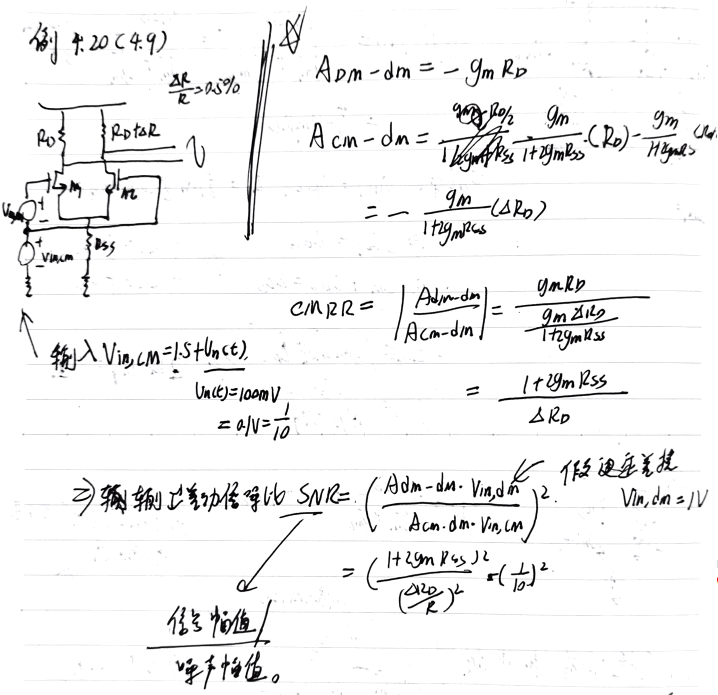 例 4.20(4.9)
ΔR/R = 0.5%
R_D
R_D+ΔR
M1
M2
Vin,cm
R_SS
A_DM-dm = - gm R_D
A_cm-dm = gm/(1+2gmRss) · (R_D) - gm/(1+2gmRss)
= - gm/(1+2gmRss) (ΔR_D)
CMRR = | Adm-dm / Acm-dm | = gmR_D / (gmΔR_D/(1+2gmRss))
= (1+2gmRss) / ΔR_D
输入Vin,CM=1.5+Un(t),
Un(t)=100mV
= 0.1V = 1/10
SNR = ( Adm-dm · Vin,dm / Acm-dm · Vin,cm )²
Vin,dm = 1V
= (1+2gmRss)² / (ΔR_D/R)² · (1/10)²
信号幅值/
噪声幅值。